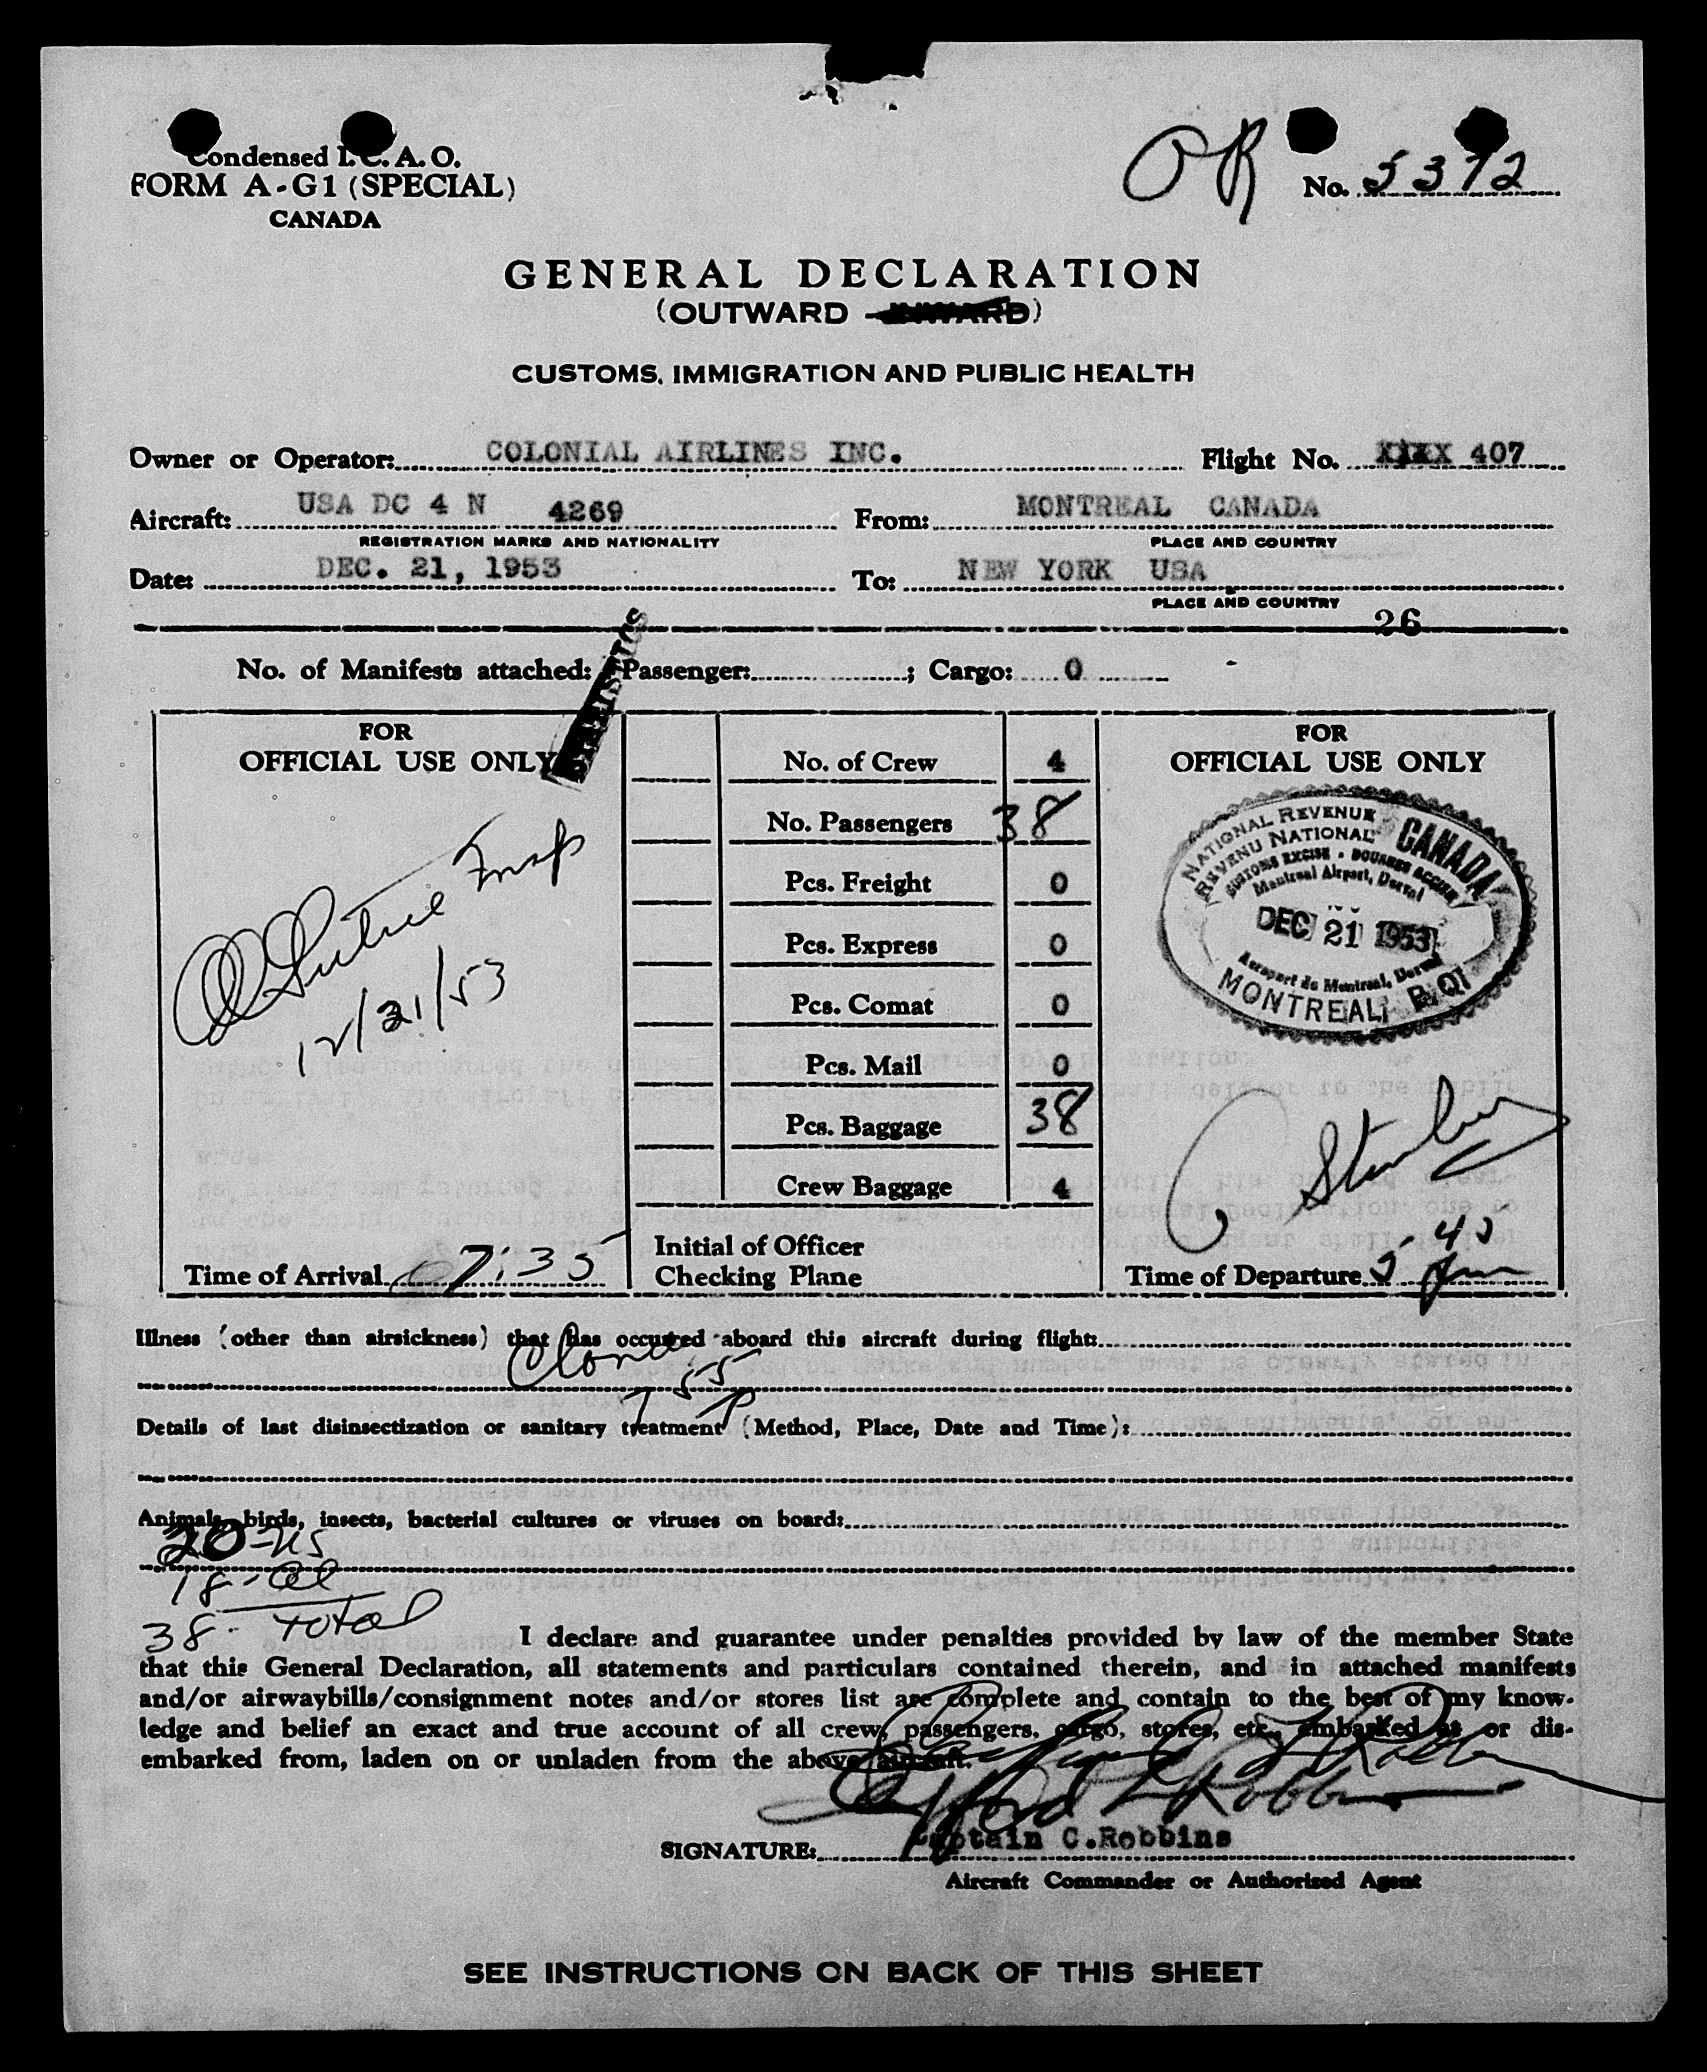 Condensed I. C. A. O.
FORM A-G1 (SPECIAL)
CANADA
OR
No. 5372
GENERAL DECLARATION
(OUTWARD - INWARD)
CUSTOMS, IMMIGRATION AND PUBLIC HEALTH
Owner or Operator: COLONIAL AIRLINES INC. Flight No. XXXX 407
Aircraft: USA DC 4 N 4269 From: MONTREAL CANADA
REGISTRATION MARKS AND NATIONALITY PLACE AND COUNTRY
Date: DEC. 21, 1953 To: NEW YORK USA
PLACE AND COUNTRY
26
No. of Manifests attached: Passenger: ; Cargo: 0 -
FOR
OFFICIAL USE ONLY
Insp
12/21/53
Time of Arrival 7:35
No. of Crew 4
No. Passengers 38
Pcs. Freight 0
Pcs. Express 0
Pcs. Comat 0
Pcs. Mail 0
Pcs. Baggage 38
Crew Baggage 4
Initial of Officer
Checking Plane
FOR
OFFICIAL USE ONLY
NATIONAL REVENUE
REVENU NATIONAL
CANADA
CUSTOMS EXCISE • DOUANES ACCISE
Montreal Airport, Dorval
DEC 21 1953
Aeroport de Montreal, Dorval
MONTREAL P. Q.
Time of Departure 5 40 pm
Illness (other than airsickness) that has occurred aboard this aircraft during flight:
755 P
Details of last disinsectization or sanitary treatment (Method, Place, Date and Time):
Animals, birds, insects, bacterial cultures or viruses on board:
20-US
18-al
38- total
I declare and guarantee under penalties provided by law of the member State
that this General Declaration, all statements and particulars contained therein, and in attached manifests
and/or airwaybills/consignment notes and/or stores list are complete and contain to the best of my know-
ledge and belief an exact and true account of all crew, passengers, cargo, stores, etc., embarked as or dis-
embarked from, laden on or unladen from the above aircraft.
Clifford L Robbins
SIGNATURE: Captain C.Robbins
Aircraft Commander or Authorized Agent
SEE INSTRUCTIONS ON BACK OF THIS SHEET